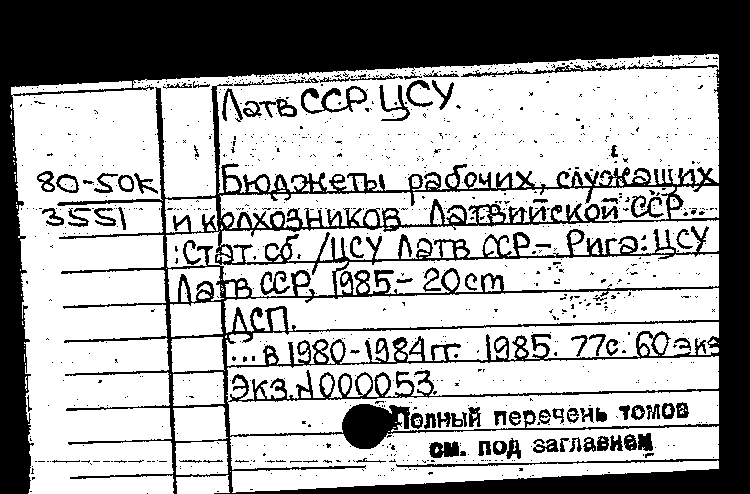 Латв ССР. ЦСУ.
80-50к Бюджеты рабочих, служащих
3551 и колхозников Латвийской ССР...
: Стат. сб. / ЦСУ Латв ССР - Рига: ЦСУ
Латв ССР, 1985. - 20 cm
ДСП.
... в 1980-1984 гг. 1985. 77с. 60 экз
Экз. N000053.
Полный перечень томов
см. под заглавием